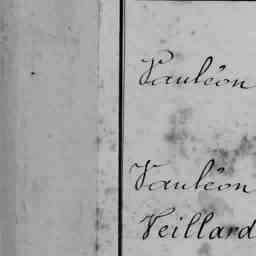 Vauléon
Vauléon
Veillard